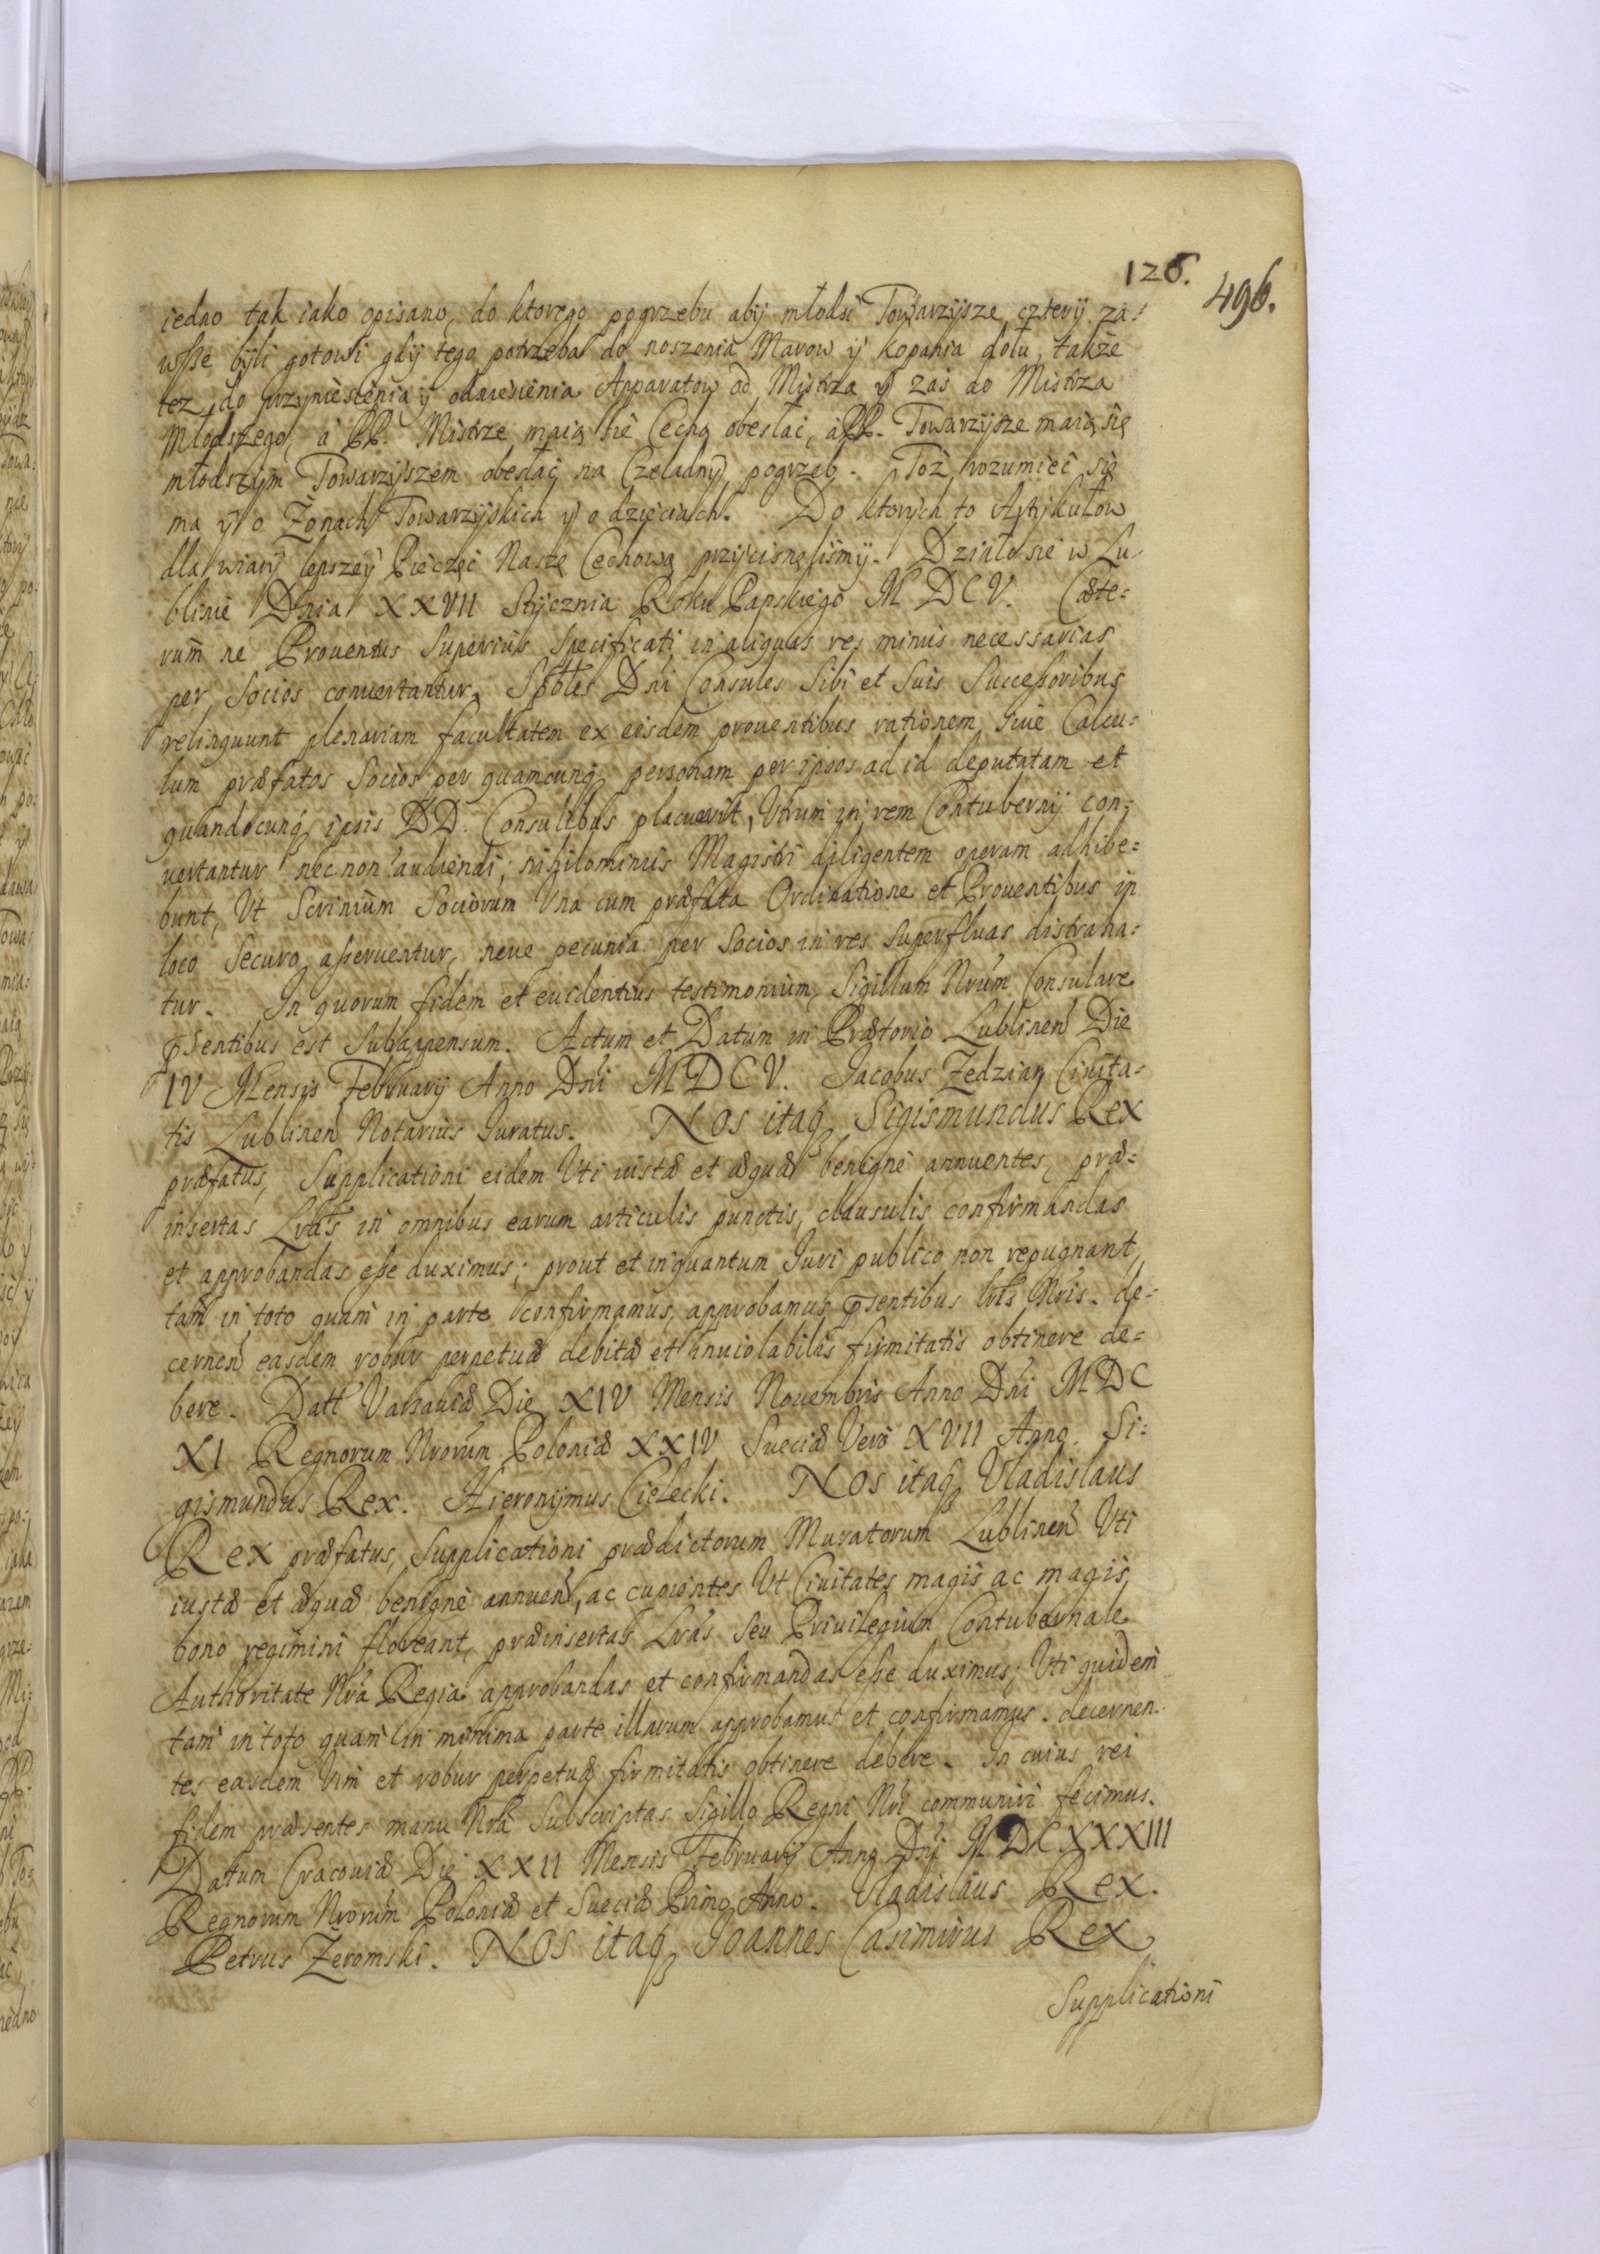 126.
496.
iedno tak iako opisano, do ktorego pogrzebu aby młodsi Towarzysze czterÿ za-
wsse byli gotowi gdÿ tego potrzeba do noszenia Marow ÿ kopania dołu, także
tez do przyniesienia ÿ odniesienia Apparatow od Mistrza ÿ zas do Mistrza
Młodszego, à PP. Mistrze maią sie Cechą obesłac, à PP. Towarzysze maią się
młodszÿm Towarzyszem obesłać na Czeladnÿ pogrzeb. Toż rozumieć się
ma ÿ o Żonach Towarzyskich ÿ o dzieciach. Do ktorych to Artykułow
dla wiarÿ lepszeÿ Pieczęć Naszę Cechową przÿcisnęlismÿ. Działo sie w Lu-
blinie Dnia XXVII Stÿcznia Roku Panskiego MDCV. Cæte=
rum ne Prouentus Superius Specificati in aliquas res minus necessarias
per Socios conuertantur, Sptbles Dni Consules Sibi et Suis Successoribus
relinquunt plenariam facultatem ex eisdem prouentibus rationem siue Calcu=
lum præfatos Socios per quamcunq personam per ipsos ad id deputatam et
quandocunq ipsis DD. Consulibus placuerit, Utrum in rem Contubernij con-
uertantur nec non audiendi; nihilominus Magistri diligentem operam adhibe=
bunt, Ut Scrinium Sociorum Una cum præfata Ordinatione et Prouentibus in
loco Securo asseruentur, neue pecunia per Socios in res Superfluas distraha=
tur. In quorum fidem et euidentius testimonium, Sigillum Nrum Consulare
pñsentibus est Subappensum. Actum et Datum in Prætorio Lublinen Die
IV Mensis Februarij Anno Dni MDCV. Jacobus Zedzian Ciuita-
tis Lublinen Notarius Iuratus. Nos itaq Sigismundus Rex
præfatus, Supplicationi eidem Uti iustæ et æquæ benigne annuentes, præ=
insertas Lras in omnibus earum articulis punctis, clausulis confirmandas
et approbandas esse duximus; prout et inquantum Iuri publico non repugnant,
tam in toto quam in parte confirmamus, approbamus pñsentibus lris Nris. de-
cernen easdem robur perpetuæ debitæ et inuiolabilis firmitatis obtinere de=
bere. Datt Varsauiæ Die XIV Mensis Nouembris Anno Dni MDC
XI Regnorum Nrorum Poloniæ XXIV Sueciæ Vero XVII Anno. Si=
gismundus Rex. Hieronÿmus Cielecki. Nos itaq Vladislaus
Rex præfatus, Supplicationi prædictorum Muratorum Lublinen Uti
iustæ et æquæ benigne annuen, ac cupientes Ut Ciuitates magis ac magis
bono regimini floreant, præinsertas Lras Seu Priuilegium Contubernale
Authoritate Nra Regia approbandas et confirmandas esse duximus; Uti quidem
tam in toto quam in minima parte illarum approbamus et confirmamus. decernen-
tes easdem Uim et robur perpetuæ firmitatis obtinere debere. In cuius rei
fidem præsentes manu Nra Subscriptas Sigillo Regni Nri communiri fecimus.
Datum Cracouiæ Die XXII Mensis Februarij Anno Dni MDCXXXIII
Regnorum Nrorum Poloniæ et Sueciæ Primo Anno. Vladislaus Rex.
Petrus Zeromski. Nos itaq Joannes Casimirus Rex
Supplicationi